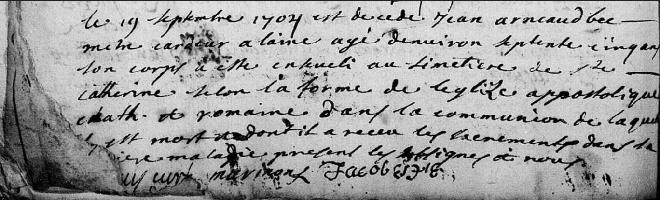 le 19 septembre 1704 est decede Jean arneaud bee
metre cardeur a laine agé denviron septente cinq ans
son corps a este enseveli au simetiere de Ste
catherine selon la forme de leglize appostolique
cath. & romaine dans la communion de laque
est mort & dont il a receu les sacrements dans sa
maladie present les ssignes & nous
curé